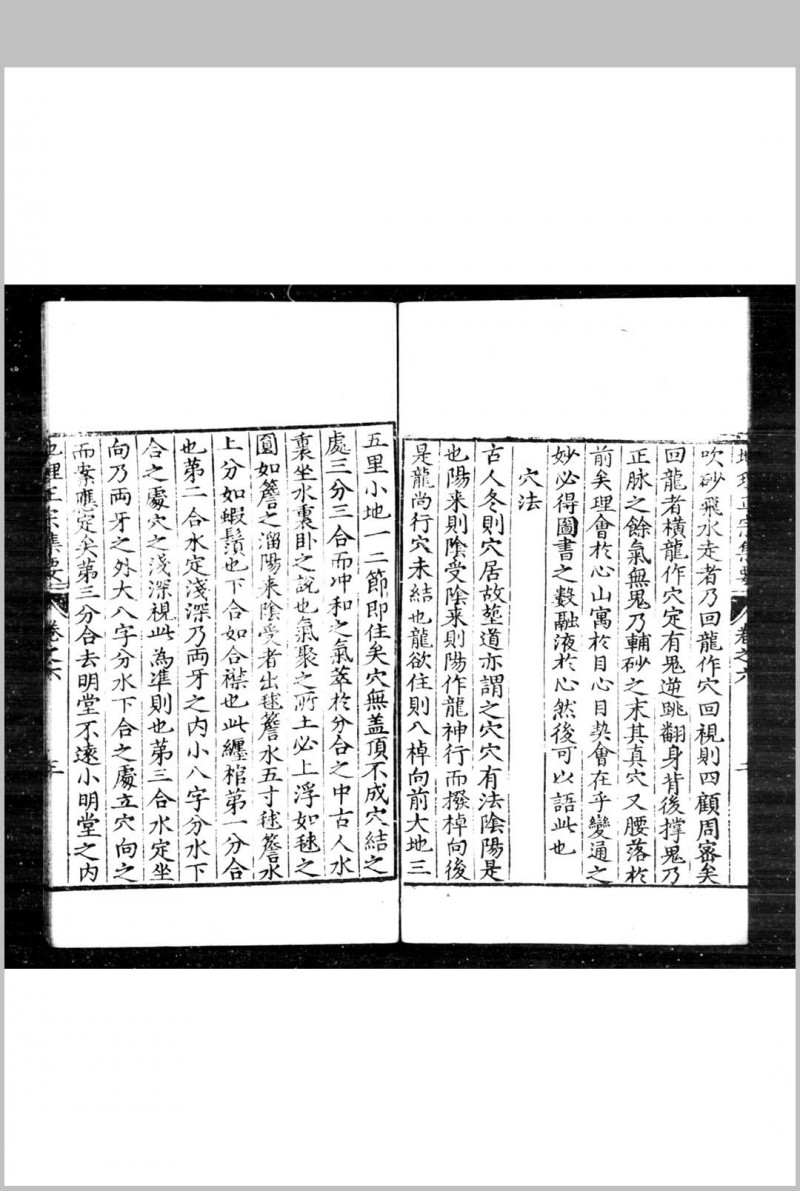 吹砂飛水走者乃回龍作穴回視則四顧周密矣
回龍者橫龍作穴定有鬼逆跳翻身背後撐鬼乃
正脉之餘氣無鬼乃輔砂之末其真穴又腰落於
前矣理會於心山寓於目心目契會在乎變通之
妙必得圖書之数融液於心然後可以語此也
穴法
古人冬則穴居故塋道亦謂之穴穴有法陰陽是
也陽来則陰受陰来則陽作龍神行而撥棹向後
是龍尚行穴未結也龍欲住則八棹向前大地三
五里小地一二節即住矣穴無盖頂不成穴結之
處三分三合而冲和之氣萃於分合之中古人水
裏坐水裏卧之說也氣聚之所土必上浮如毬之
圓如簷之溜陽来陰受者出毬簷水五寸毬簷水
上分如蝦鬚也下合如合襟也此纏棺第一分合
也第二合水定淺深乃兩牙之内小八字分水下
合之處穴之淺深視此為准則也第三合水定坐
向乃兩牙之外大八字分水下合之處立穴向之
而案應定矣第三分合去明堂不遠小明堂之内
地理正宗集要
卷之六
地理正宗集要
卷之六